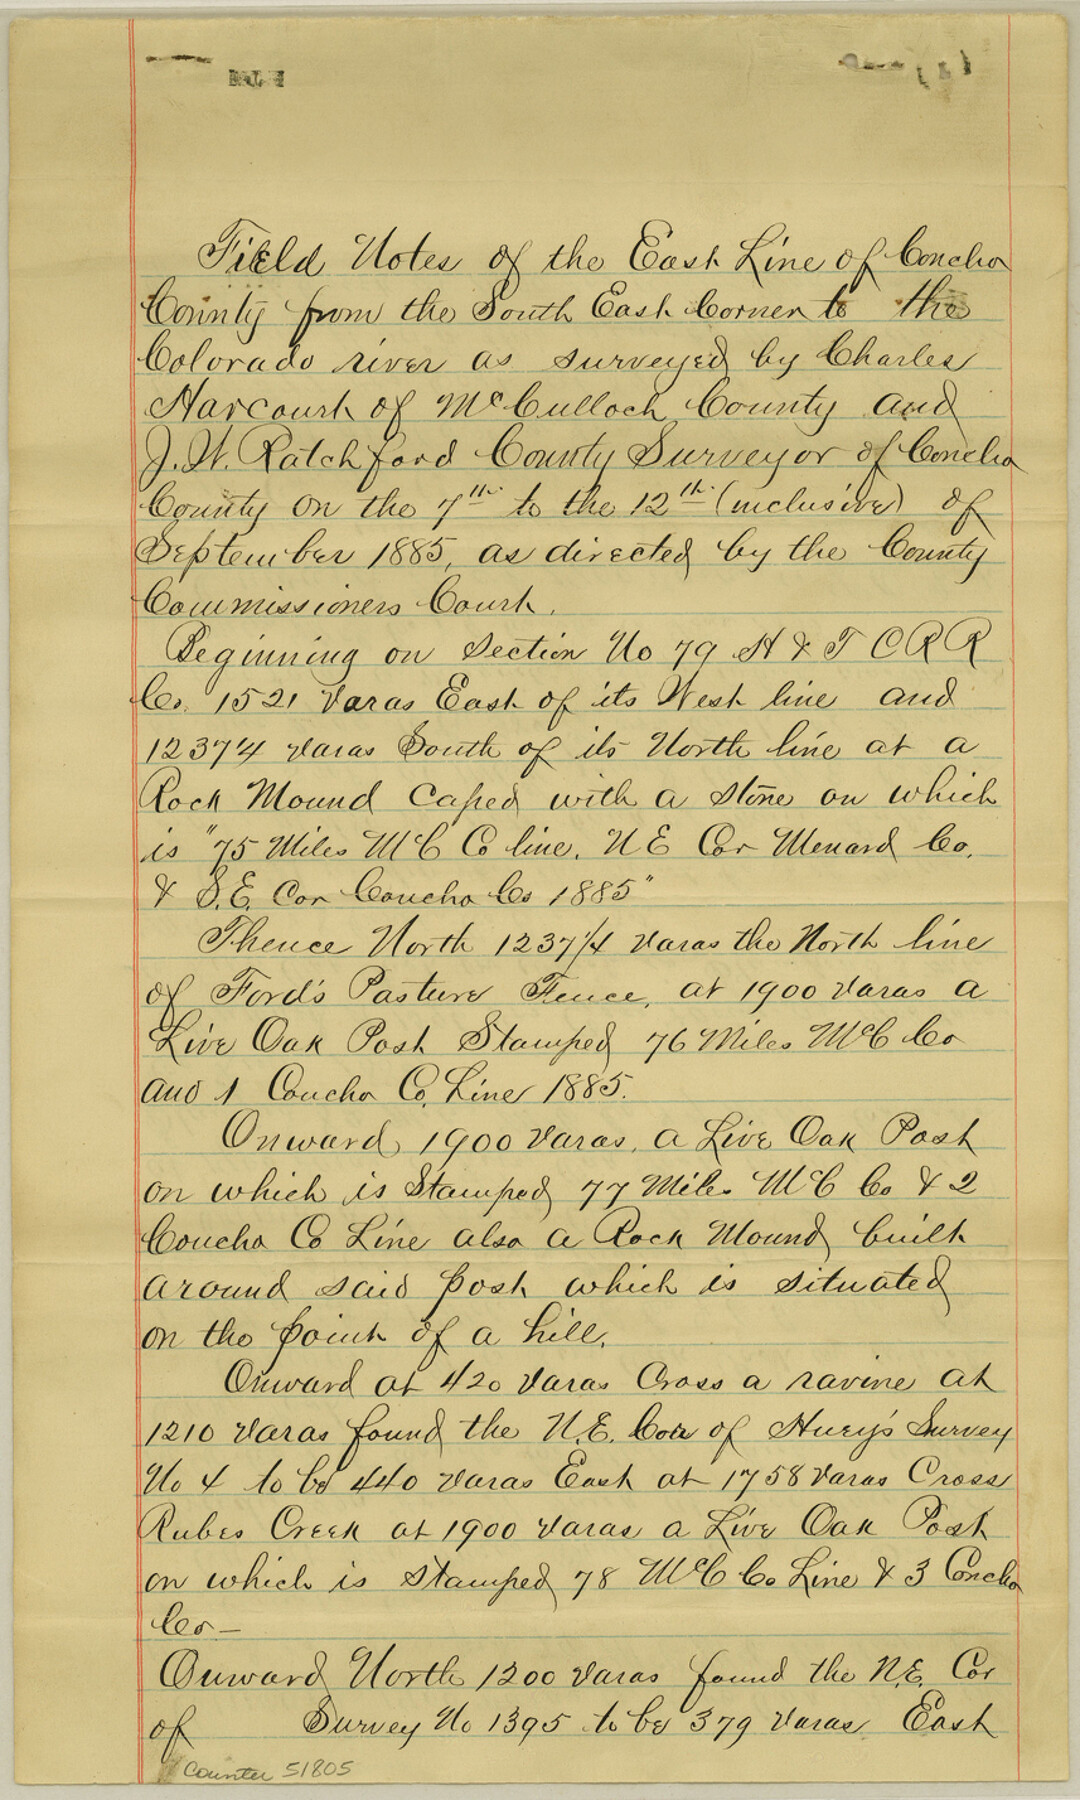 Field Notes of the East Line of Concho
County from the South East Corner to the
Colorado river as surveyed by Charles
Harcourt of McCulloch County and
J. W. Ratchford County Surveyor of Concho
County on the 7th to the 12th (inclusive) of
September 1885, as directed by the County
Commissioners Court.
Beginning on Section No 79 H & T C R R
Co. 1521 varas East of its West line and
1237¼ varas South of its North line at a
Rock Mound Caped with a stone on which
is "75 Miles McC Co line. N E Cor Menard Co.
& S.E. Cor Concho Co 1885"
Thence North 1237¼ varas the North line
of Ford's Pasture Fence, at 1900 varas a
Live Oak Post Stamped 76 Miles McC Co
and 1 Concho Co. Line 1885.
Onward, 1900 varas, a Live Oak Post
on which is Stamped 77 Miles McC Co & 2
Concho Co Line also a Rock Mound built
around said post which is situated
on the point of a hill.
Onward at 420 varas Cross a ravine at
1210 varas found the N.E. Cor of Huey's Survey
No 4 to be 440 varas East at 1758 varas Cross
Rubes Creek at 1900 varas a Live Oak Post
on which is stamped 78 McC Co Line & 3 Concho
Co—
Onward North 1200 varas found the N.E. Cor
of Survey No 1395 to be 379 varas East
Counter 51805